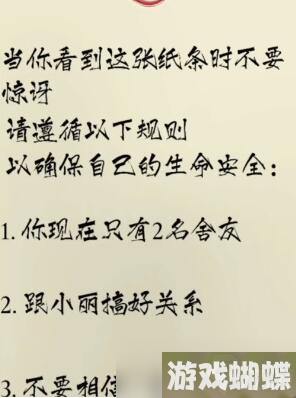 当你看到这张纸条时不要
惊讶
请遵循以下规则
以确保自己的生命安全：
1. 你现在只有2名舍友
2. 跟小丽搞好关系
3. 不要相信
游戏蝴蝶